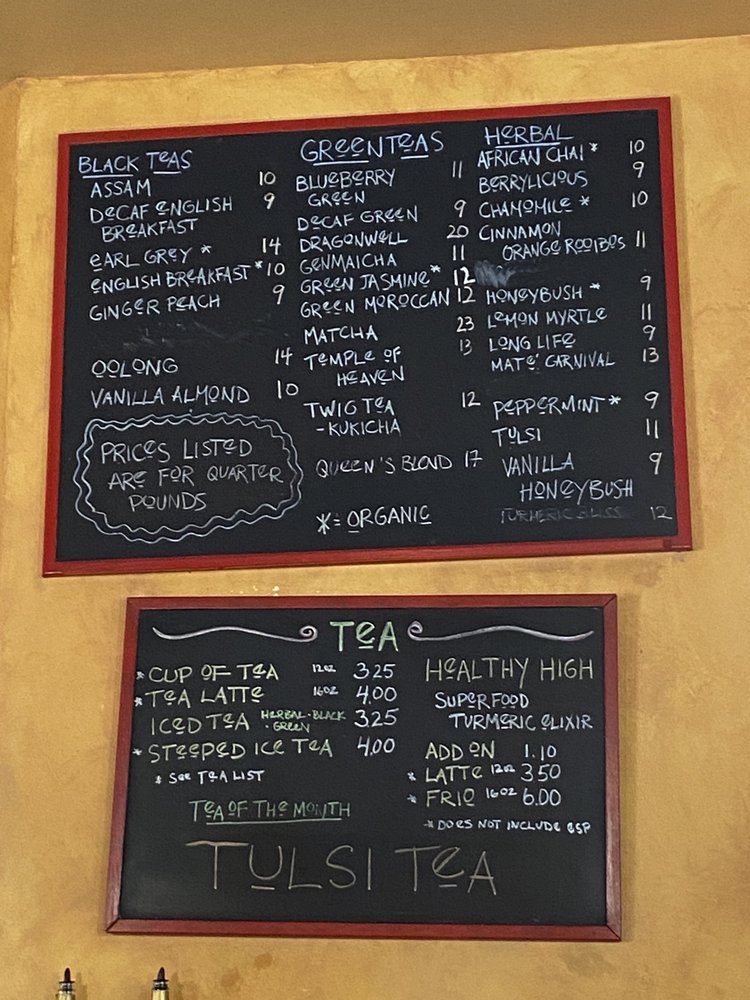 BLACK TEAS
ASSAM 10
DECAF ENGLISH 9
BREAKFAST
EARL GREY * 14
ENGLISH BREAKFAST * 10
GINGER PEACH 9
OOLONG 14
VANILLA ALMOND 10
PRICES LISTED
ARE FOR QUARTER
POUNDS
GREEN TEAS
BLUEBERRY 11
GREEN
DECAF GREEN 9
DRAGONWELL 20
GENMAICHA 11
GREEN JASMINE * 12
GREEN MOROCCAN 12
MATCHA 23
TEMPLE OF 13
HEAVEN
TWIG TEA 12
-KUKICHA
QUEEN'S BLOND 17
* = ORGANIC
HERBAL
AFRICAN CHAI * 10
BERRYLICIOUS 9
CHAMOMILE * 10
CINNAMON
ORANGE ROOIBOS 11
HONEYBUSH * 9
LEMON MYRTLE 11
LONG LIFE 9
MATE' CARNIVAL 13
PEPPERMINT * 9
TULSI 11
VANILLA 9
HONEYBUSH
TURMERIC BLISS 12
TEA
* CUP OF TEA 12oz 3.25
* TEA LATTE 16oz 4.00
ICED TEA HERBAL · BLACK 3.25
· GREEN
* STEEPED ICE TEA 4.00
* SEE TEA LIST
TEA OF THE MONTH
TULSI TEA
HEALTHY HIGH
SUPERFOOD
TURMERIC ELIXIR
ADD ON 1.10
* LATTE 12oz 3.50
* FRIO 16oz 6.00
* DOES NOT INCLUDE ESP